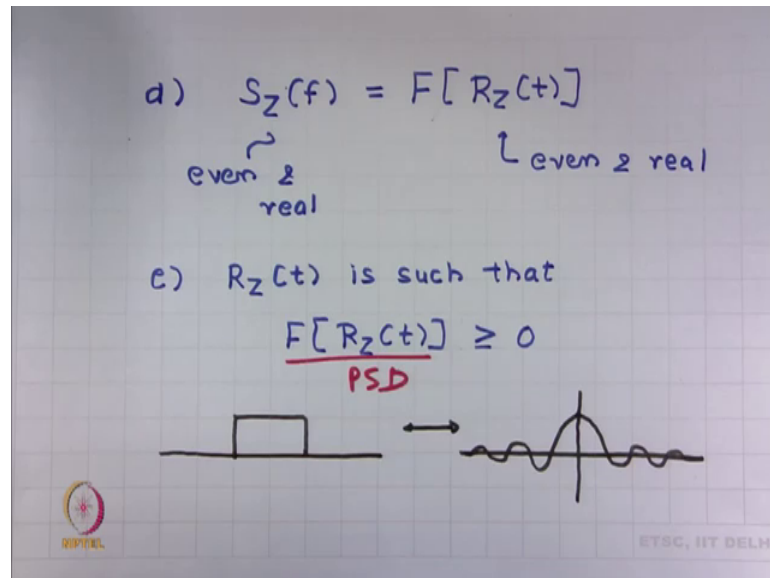 d) S_Z(f) = F[R_Z(t)]
even & real
even & real
e) R_Z(t) is such that
F[R_Z(t)] ≥ 0
PSD
NPTEL
ETSC, IIT DELH